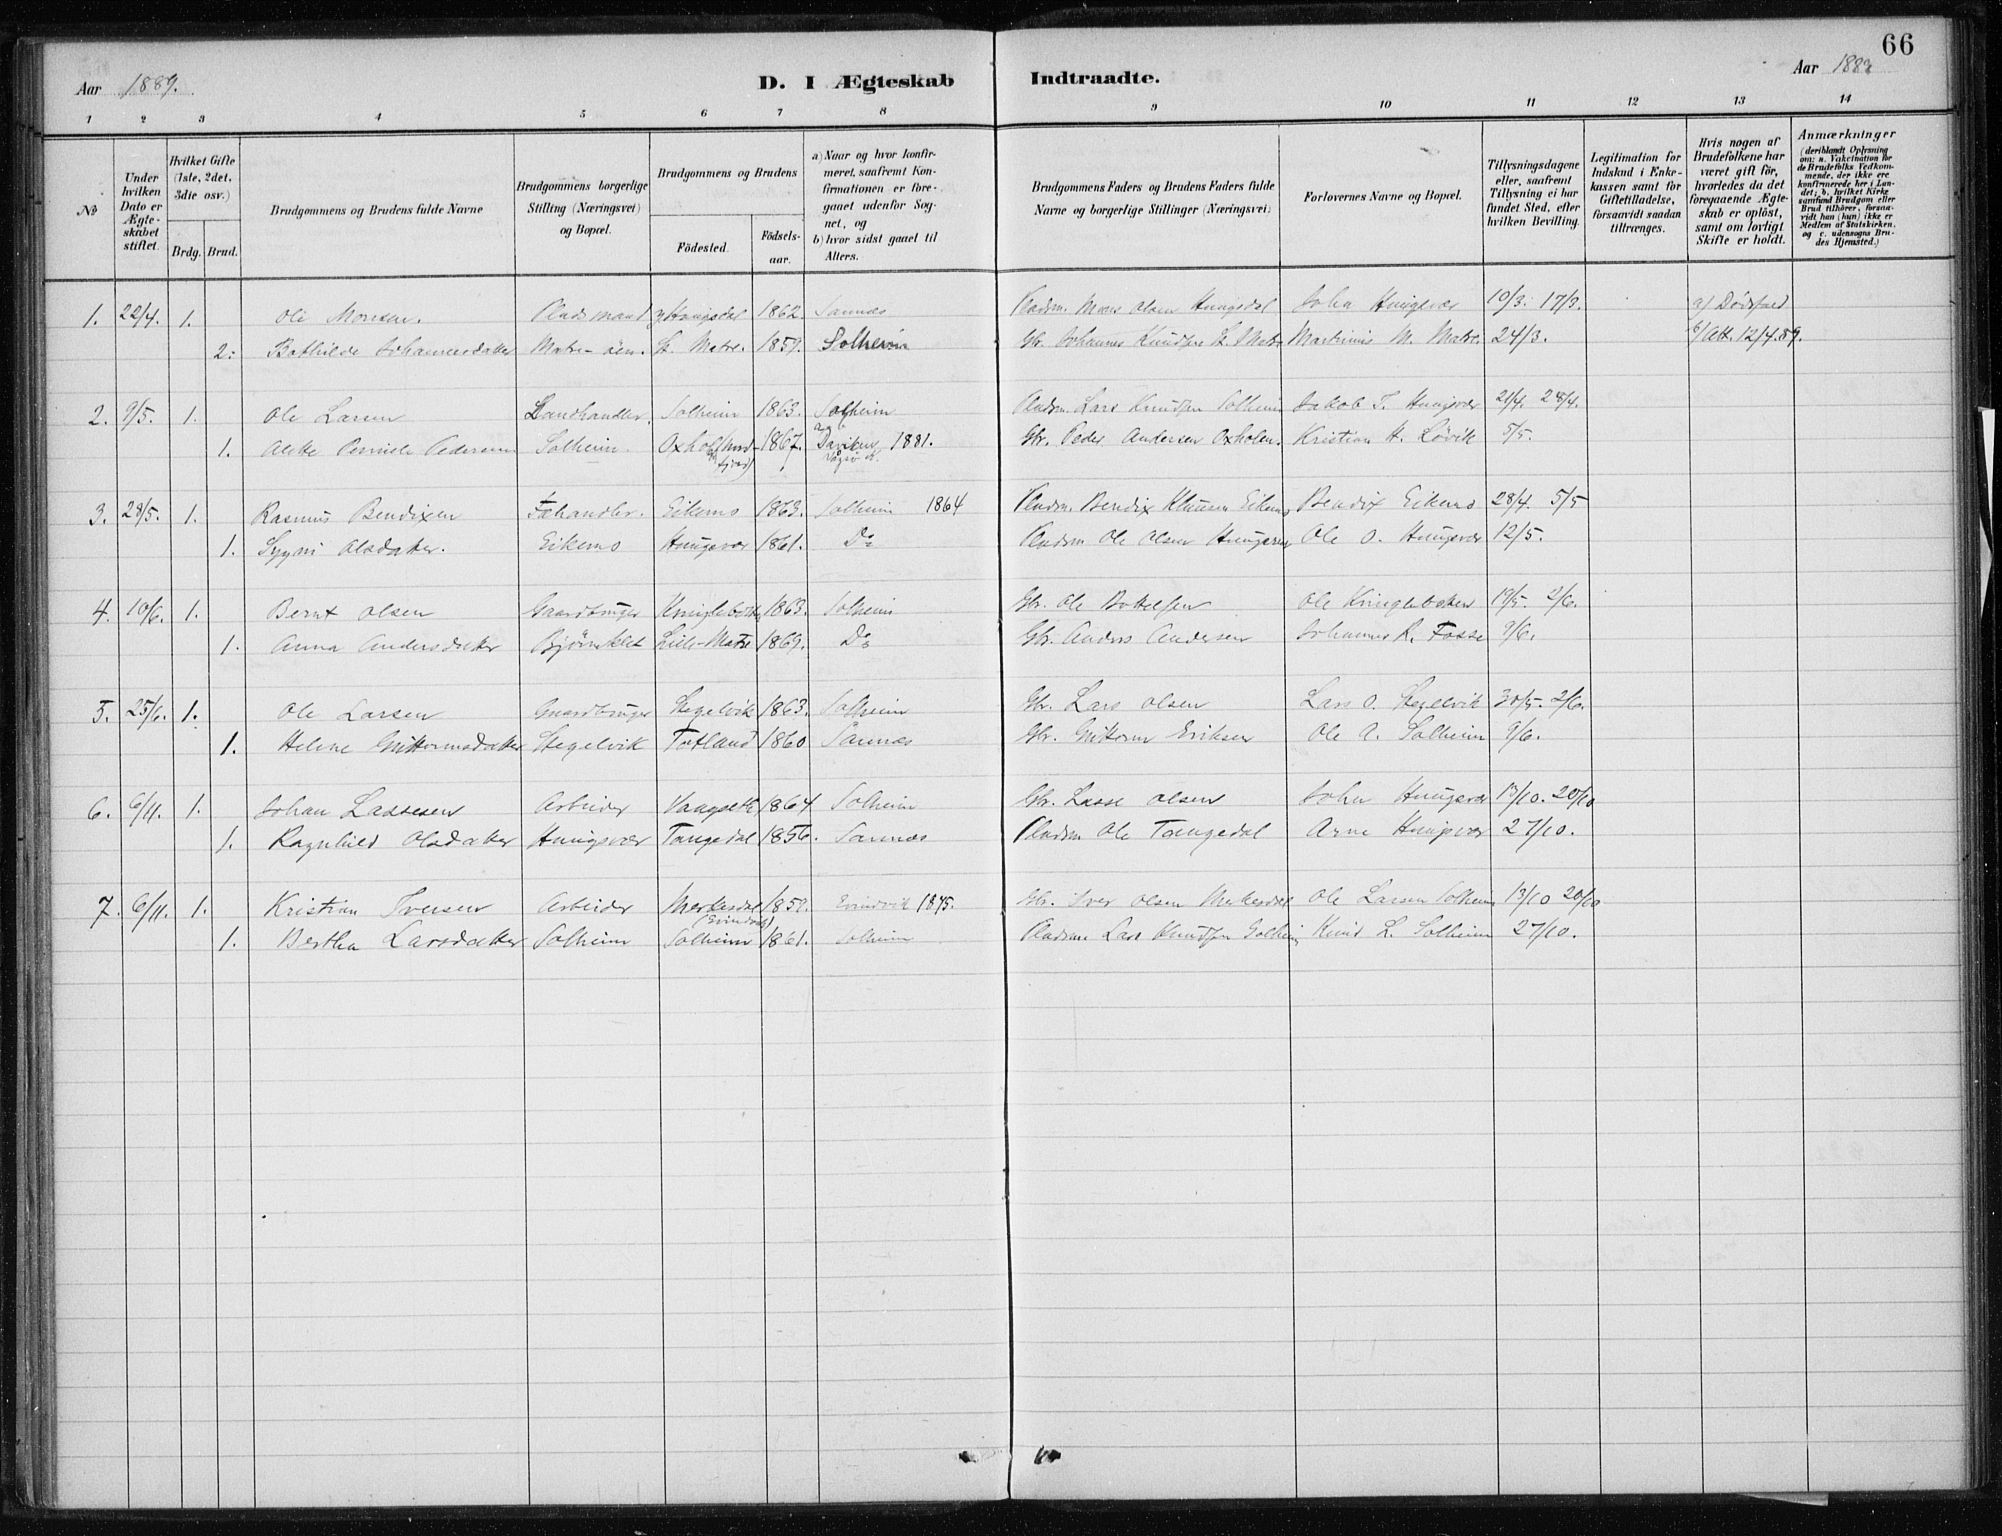 66
Aar 1889.
D. I Ægteskab Indtraadte.
Aar 188
1 2 3 4 5 6 7 8 9 10 11 12 13 14
№
Under hvilken Dato er Ægteskabet stiftet.
Hvilket Gifte (1ste, 2det, 3die osv.)
Brdg. Brud.
Brudgommens og Brudens fulde Navne
Brudgommens borgerlige Stilling (Næringsvei) og Bopæl.
Brudgommens og Brudens
Födested.
Födsels-aar.
a) Naar og hvor konfirmeret, saafremt Konfirmationen er foregaaet udenfor Sognet, og
b) hvor sidst gaaet til Alters.
Brudgommens Faders og Brudens Faders fulde Navne og borgerlige Stillinger (Næringsvei)
Forlovernes Navne og Bopæl.
Tillysningsdagene eller, saafremt Tillysning ei har fundet Sted, efter hvilken Bevilling.
Legitimation for Indskud i Enkekassen samt for Giftetilladelse, forsaavidt saadan tiltrænges.
Hvis nogen af Brudefolkene har været gift för, hvorledes da det foregaaende Ægteskab er oplöst, samt om lovligt Skifte er holdt.
Anmærkninger
(deriblandt Oplysning om: a. Vakcination for de Brudefolks Vedkommende, der ikke ere konfirmerede her i Landet; b. hvilket Kirkesamfund Brudgom eller Brud tilhörer, forsaavidt han (hun) ikke er Medlem af Statskirken, og c. udensogns Brudes Hjemsted.)
1. 22/4. 1. Ole Monsen. Pladsmand 1862. Sannæs Pladsm. Mons Olsen Haugsdal John 10/3. 17/3. a/ Dödsfald
2. Bathilde Johannesdatter Matre-öen. St. Matre. 1859. Solheim Gbr. Johannes Knudsen St. Matre Martinus M. Matre. 24/3. b/ Att. 12/4.89.
2. 9/5. 1. Ole Larsen Landhandler. Solheim 1863. Solheim Pladsm. Lars Knudsen Solheim Jakob T. 21/4. 28/4.
1. Alette Pernille Pedersen Solheim. Oxholm (Nordfjord) 1867. Daviken 1881. Gbr. Peder Andersen Oxholm. Kristian H. Lövik 5/5.
3. 28/5. 1. Rasmus Bendixen Fæhandler. Eikemo 1863. Solheim 1864 Pladsm. Bendix Eikemo Bendix Eikemo 28/4. 5/5
1. Olsdatter. Eikemo 1861. Do Pladsm. Ole Olsen Ole O. 12/5.
4. 10/6. 1. Bernt Olsen Gaardbruger 1863. Solheim Gbr. Ole Botolfsen Ole 19/5. 2/6.
1. Anna Andersdatter Lille-Matre 1869. Do Gbr. Anders Andersen Johannes R. Fosse 9/6.
5. 25/6. 1. Ole Larsen Gaardbruger Stegelvik 1863. Solheim Gbr. Lars Olsen Lars O. Stegelvik 30/5. 2/6.
1. Helene Guttormsdatter Stegelvik Totland 1860 Sannæs Gbr. Guttorm Eriksen Ole A. Solheim 9/6.
6. 6/11. 1. Johan Lassesen Arbeider 1864. Solheim Gbr. Lasse Olsen John 13/10. 20/10
1. Ragnhild Olsdatter Tangedal 1856. Sannæs Pladsm. Ole Tangedal Arne 27/10.
7. 6/11. 1. Kristian Iversen Arbeider (Evindvik) 1859. Evindvik 1875. Gbr. Iver Olsen Ole Larsen Solheim 13/10 20/10
1. Bertha Larsdatter Solheim Solheim 1861. Solheim Pladsm. Lars Knudsen Solheim Knud L. Solheim 27/10.